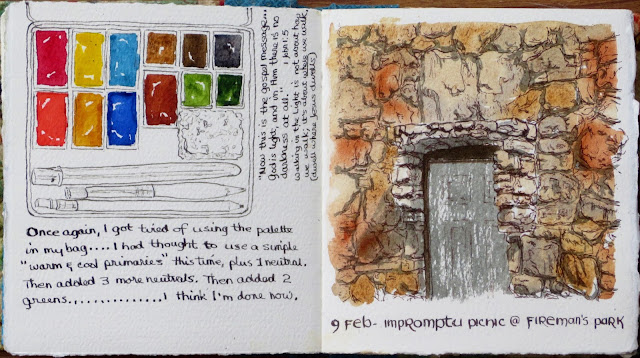 "Now this is the gospel message...
God is light, and in Him there is no
darkness at all." 1 John 1:5
Walking in the light is not about how
we walk; it's about where we walk.
(dwell where Jesus dwells)
Once again, I got tired of using the palette
in my bag.... I had thought to use a simple
"warm & cool primaries" this time, plus 1 neutral.
Then added 3 more neutrals. Then added 2
greens.............. I think I'm done now.
9 Feb - Impromptu Picnic @ Fireman's Park